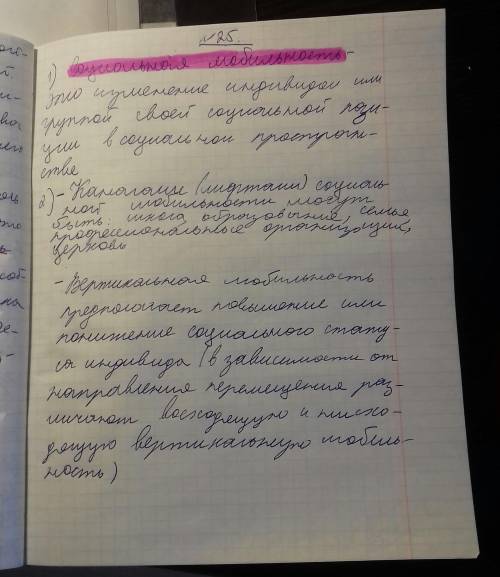 №25.
1) Социальная мобильность-
это изменение индивидом или
группой своей социальной пози-
ции в социальном пространс-
стве
2) - Каналами (лифтами) социаль-
ной мобильности могут
быть: школа, образование, семья,
профессиональные организации,
церковь
- Вертикальная мобильность
предполагает повышение или
понижение социального стату-
са индивида (в зависимости от
направления перемещения раз-
личают восходящую и нисхо-
дящую вертикальную мобиль-
ность)